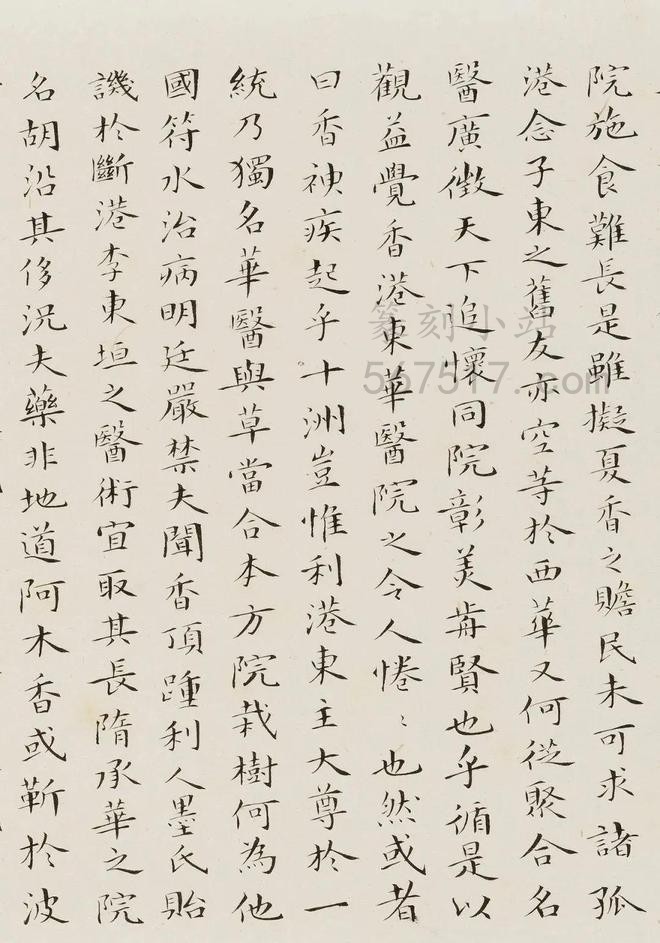 院施食難長是雖擬夏香之贍民未可求諸孤
港念子東之舊友亦空等於西華又何從聚合名
醫廣徵天下追懷同院彰美前賢也乎循是以
觀益覺香港東華醫院之令人惓〻也然或者
曰香袂疾起乎十洲豈惟利港東主大尊於一
統乃獨名華醫與草當合本方院栽樹何為他
國符水治病明廷嚴禁夫聞香頂踵利人墨氏貽
譏於斷港李東垣之醫術宜取其長隋承華之院
名胡沿其侈況夫藥非地道阿木香或靳於波
篆刻小站
567517.com